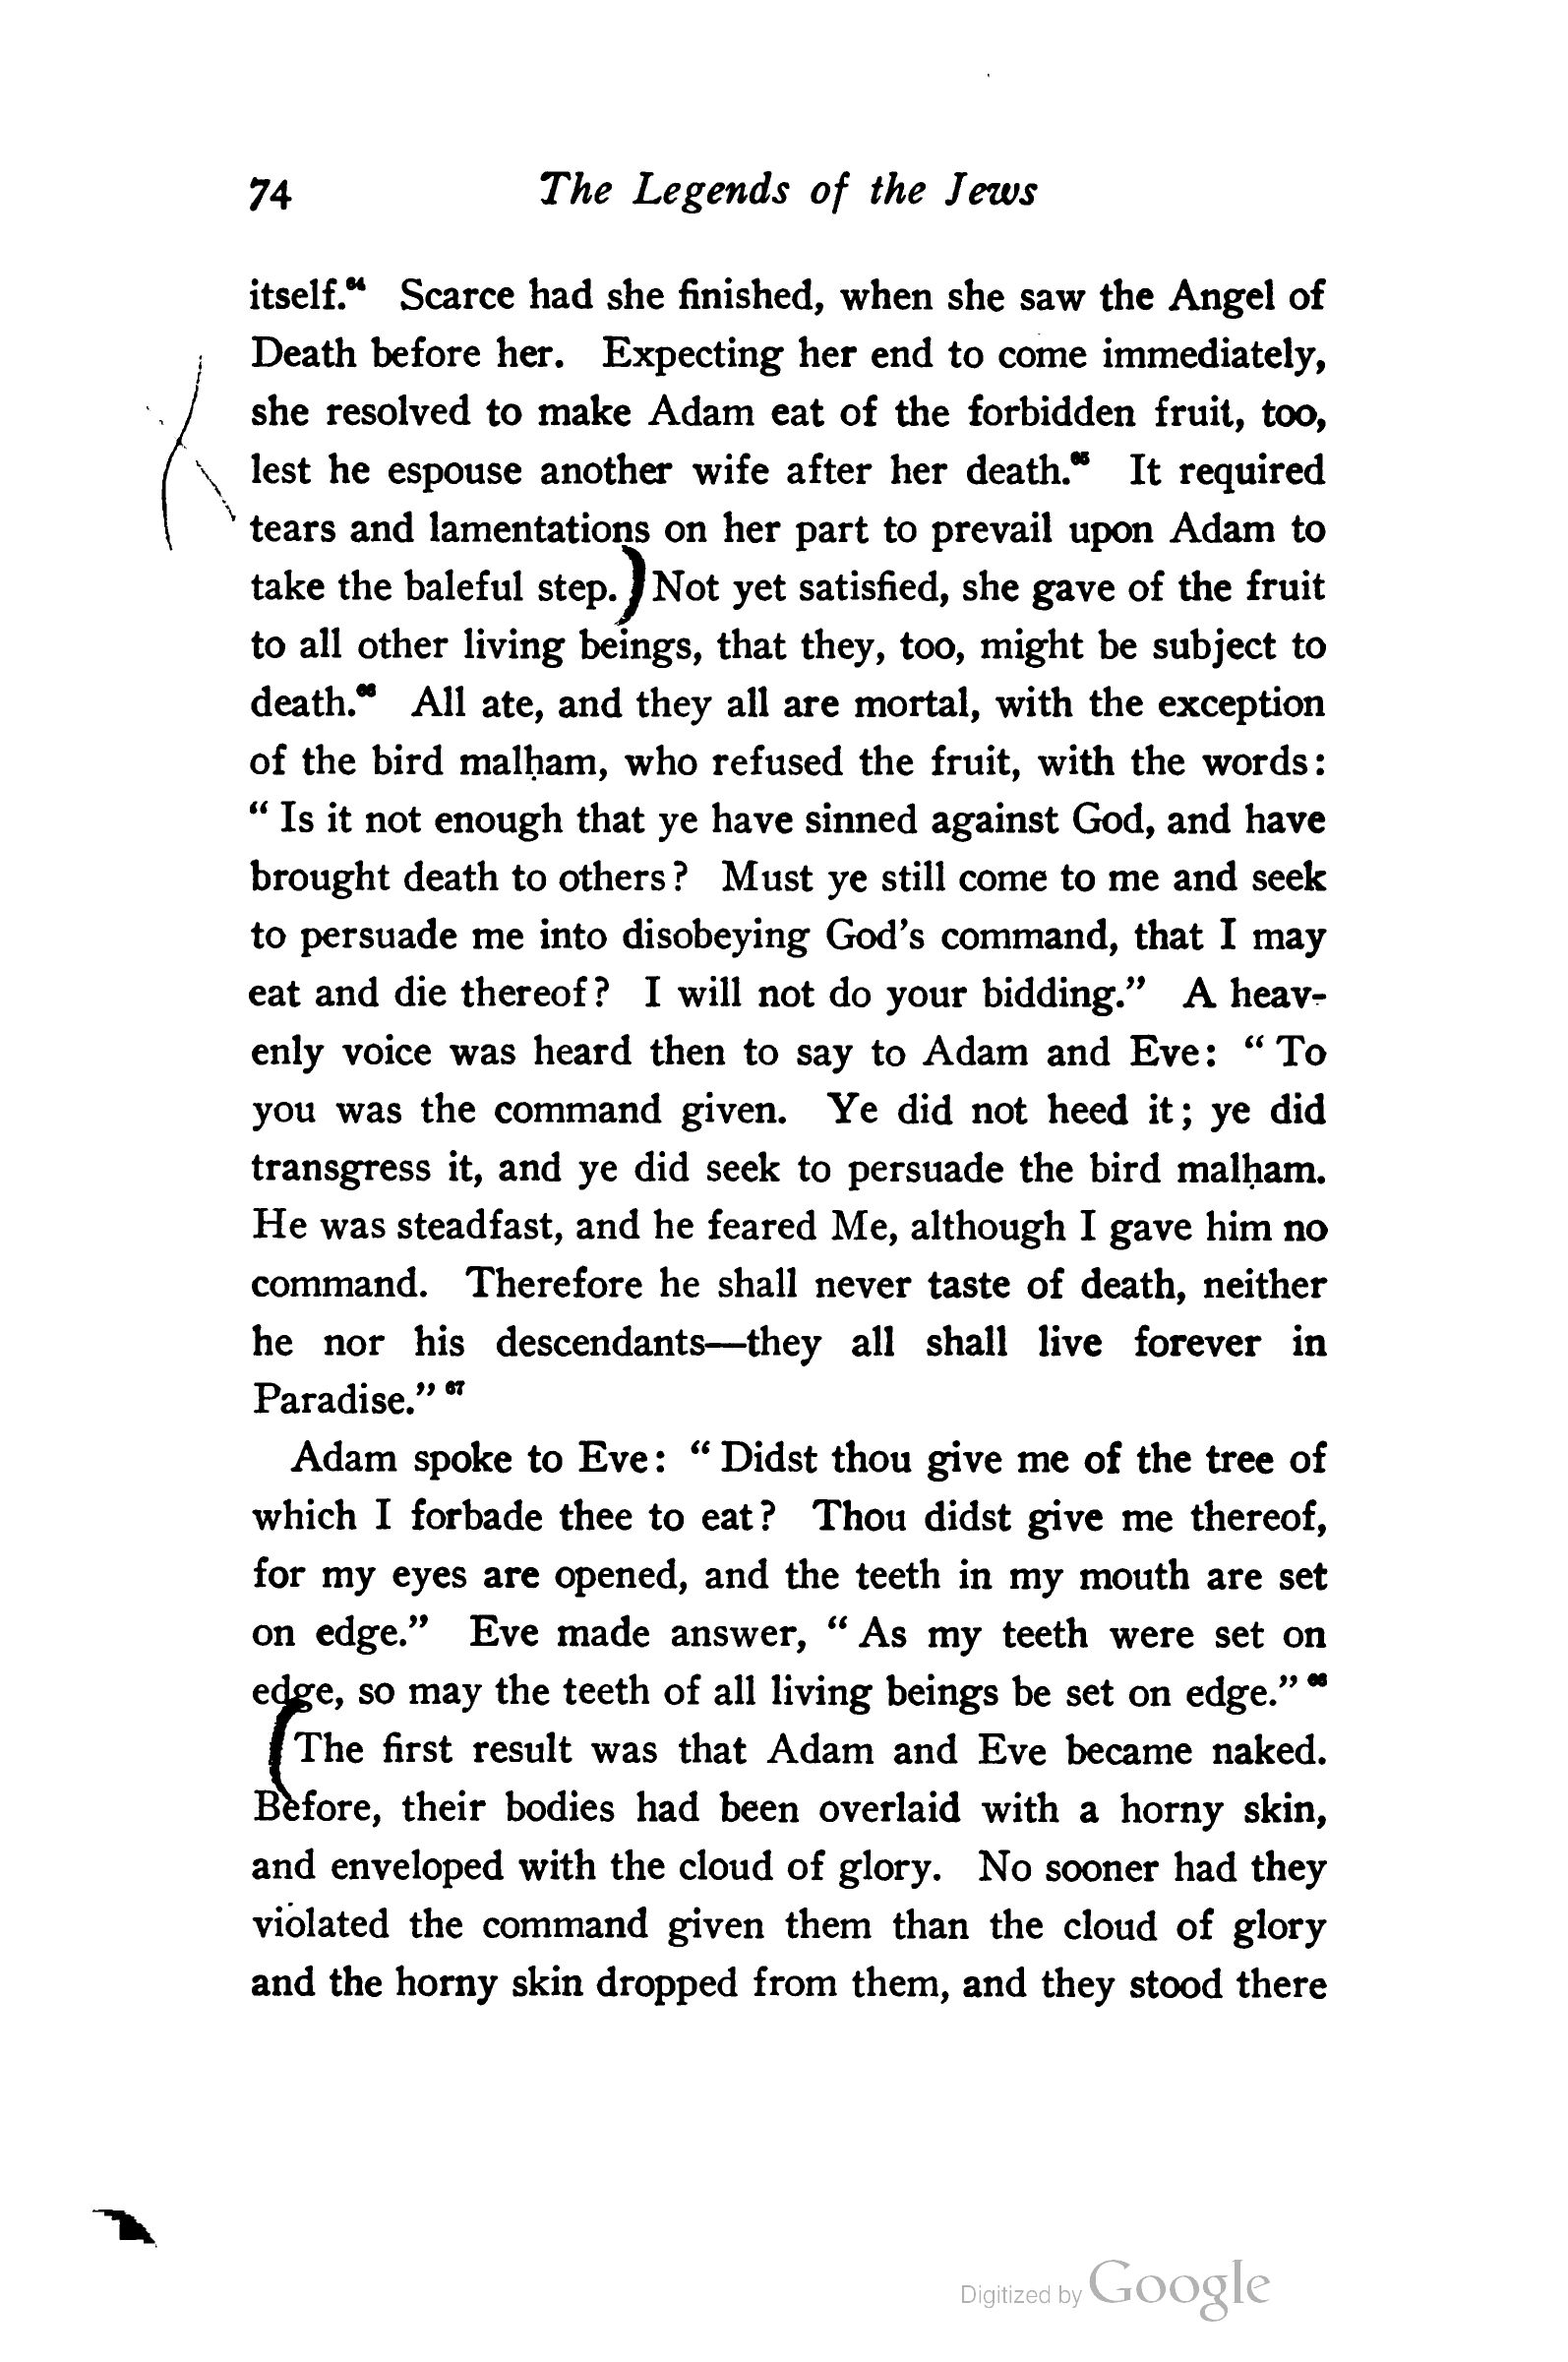 74 The Legends of the Jews
itself.⁶⁴ Scarce had she finished, when she saw the Angel of
Death before her. Expecting her end to come immediately,
she resolved to make Adam eat of the forbidden fruit, too,
lest he espouse another wife after her death.⁶⁵ It required
tears and lamentations on her part to prevail upon Adam to
take the baleful step.) Not yet satisfied, she gave of the fruit
to all other living beings, that they, too, might be subject to
death.⁶⁶ All ate, and they all are mortal, with the exception
of the bird malḥam, who refused the fruit, with the words:
“ Is it not enough that ye have sinned against God, and have
brought death to others? Must ye still come to me and seek
to persuade me into disobeying God’s command, that I may
eat and die thereof? I will not do your bidding.” A heav-
enly voice was heard then to say to Adam and Eve: “ To
you was the command given. Ye did not heed it; ye did
transgress it, and ye did seek to persuade the bird malḥam.
He was steadfast, and he feared Me, although I gave him no
command. Therefore he shall never taste of death, neither
he nor his descendants—they all shall live forever in
Paradise.” ⁶⁷
Adam spoke to Eve: “ Didst thou give me of the tree of
which I forbade thee to eat? Thou didst give me thereof,
for my eyes are opened, and the teeth in my mouth are set
on edge.” Eve made answer, “ As my teeth were set on
edge, so may the teeth of all living beings be set on edge.” ⁶⁸
(The first result was that Adam and Eve became naked.
Before, their bodies had been overlaid with a horny skin,
and enveloped with the cloud of glory. No sooner had they
violated the command given them than the cloud of glory
and the horny skin dropped from them, and they stood there
Digitized by Google